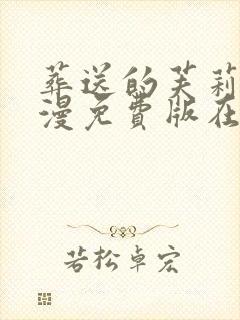 葬送的芙莉
漫免費版在
若松卓宏